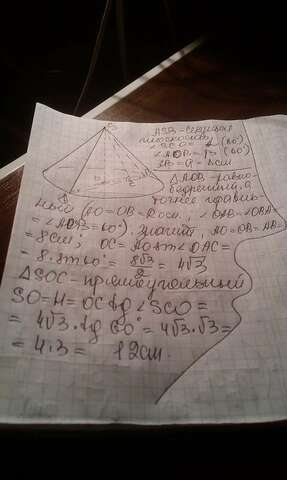 ASB - сечение
плоскостью
∠SCO = α (60)
∠AOB = β (60)
AB = a = 8см
△AOB - равно-
бедренный, а
точнее правиль-
ный (AO = OB = Rосн., ∠OAB = ∠OBA =
= ∠AOB = 60°). Значит, AO = OB = AB =
= 8см; OC = AO sin∠OAC =
= 8·sin60° = 8√3/2 = 4√3
△SOC - прямоугольный
SO = H = OC tg∠SCO =
= 4√3 · tg 60° = 4√3 · √3 =
= 4·3 = 12см.